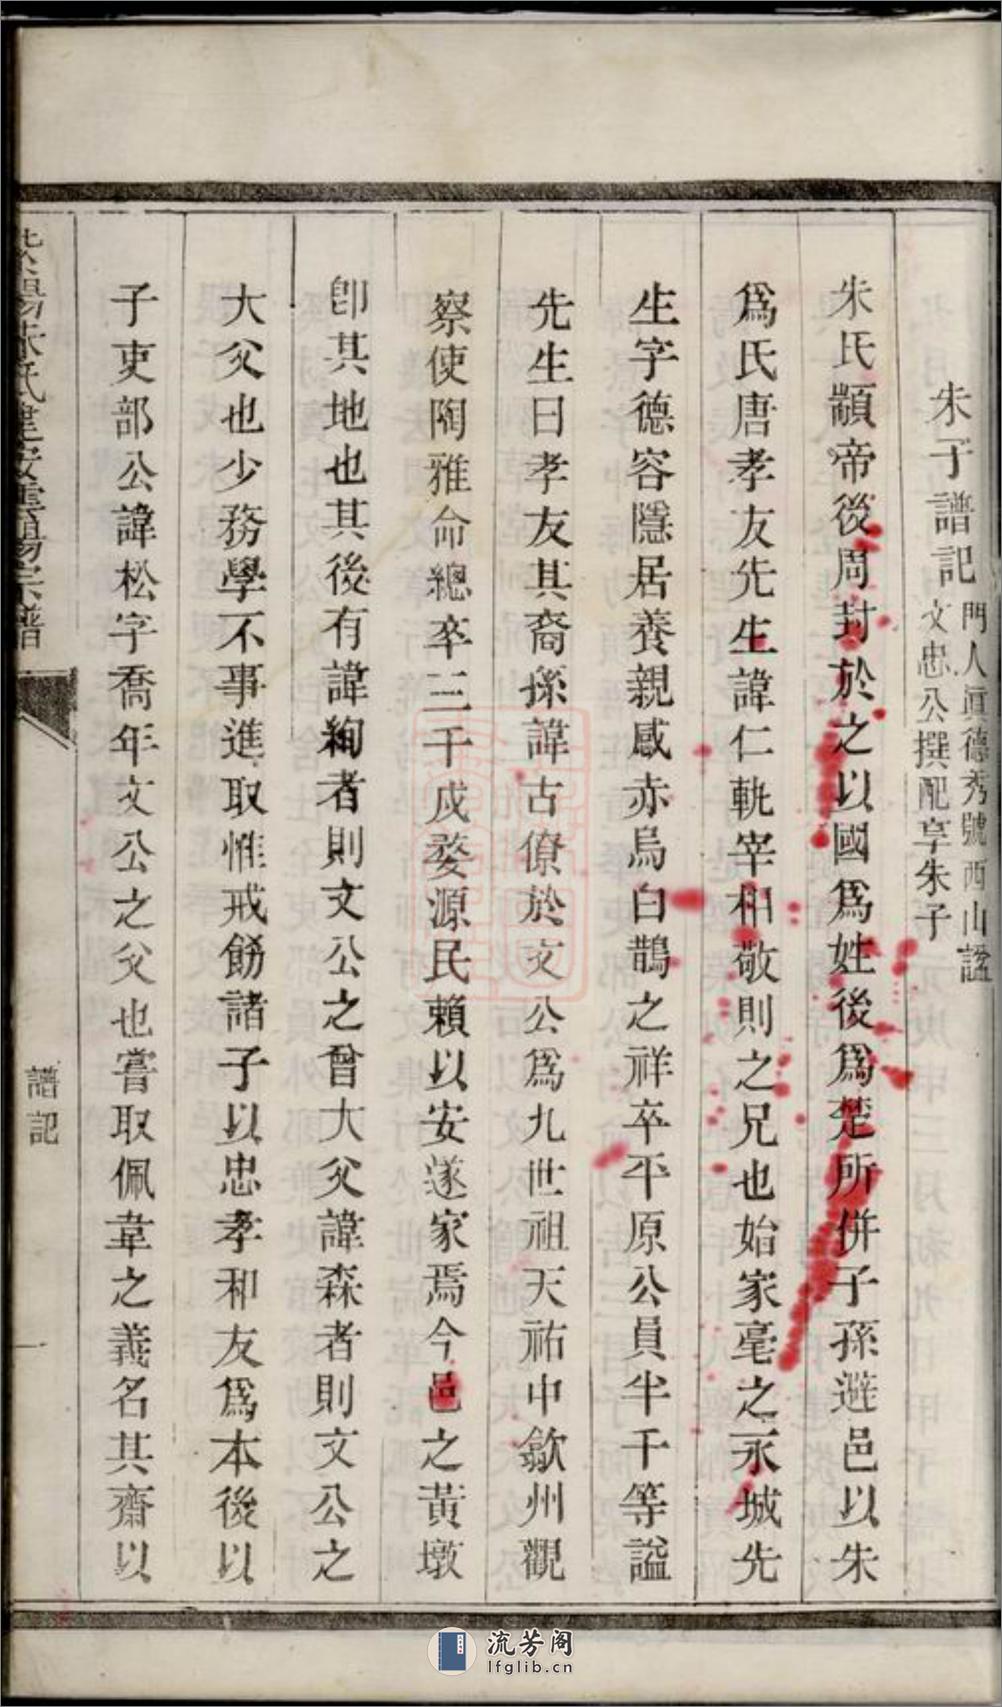 朱子譜記
門人眞德秀號西山諡
文忠公撰配享朱子
朱氏顓帝後周封於之以國爲姓後爲楚所併子孫避邑以朱
爲氏唐孝友先生諱仁軌宰相敬則之兄也始家亳之永城先
生字德容隱居養親感赤烏白鵲之祥卒平原公員半千等諡
先生曰孝友其裔孫諱古僚於文公爲九世祖天祐中歙州觀
察使陶雅命總卒三千戍婺源民賴以安遂家焉今邑之黃墩
卽其地也其後有諱絢者則文公之曾大父諱森者則文公之
大父也少務學不事進取惟戒飭諸子以忠孝和友爲本後以
子吏部公諱松字喬年文公之父也嘗取佩韋之義名其齋以
紫陽朱氏建安雲陽宗譜
譜記
一
流芳阁
lfglib.cn